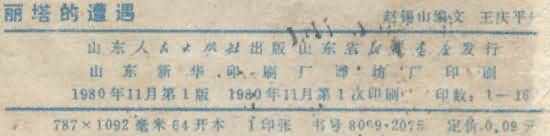 丽塔的遭遇 赵锡山编文 王庆平
山东人民出版社出版 山东省新华书店发行
山东新华印刷厂潍坊厂印刷
1980年11月第1版 1980年11月第1次印刷 印数:1—16
787×1092毫米64开本 1印张 书号8099·2075 定价:0.09元